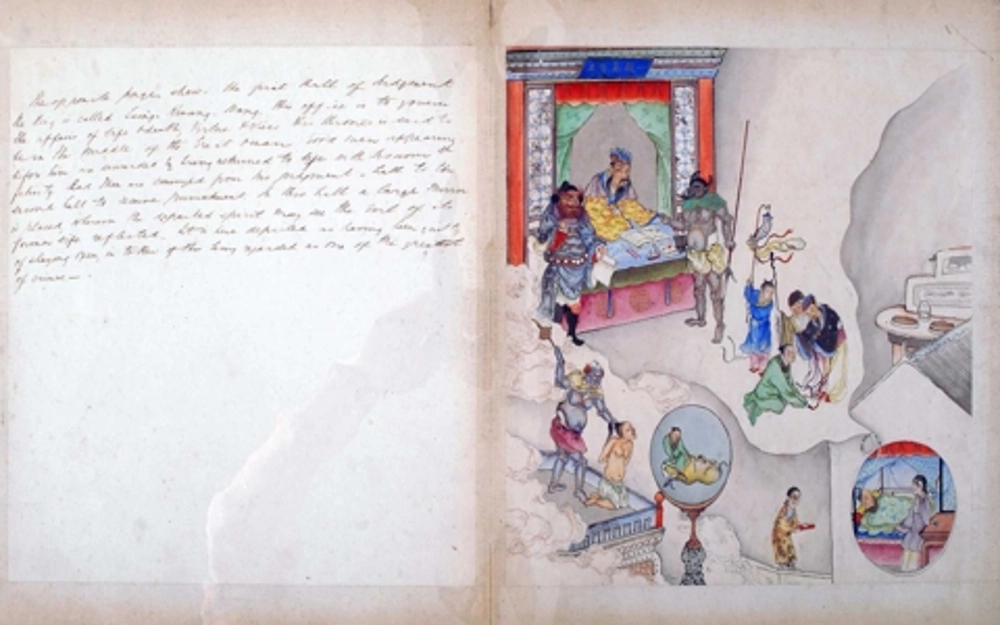 The opposite page shows. The first Hall of Judgement
the King is called Tsing-Kwang-Wang. His office is to govern
the affairs of life & death, His throne is said to
be in the middle of the Great Ocean. Good men appearing
before him are rewarded by being returned to life with honour &
felicity bad Men are from his judgment Hall to the
second hall to receive Punishment. In this hall a large Mirror
is placed, wherein the departed spirit may see the evil of its
former life reflected. Some here depicted as having been guilty
of slaying Oxen, is to this of their being regarded as one of the greatest
of crimes —